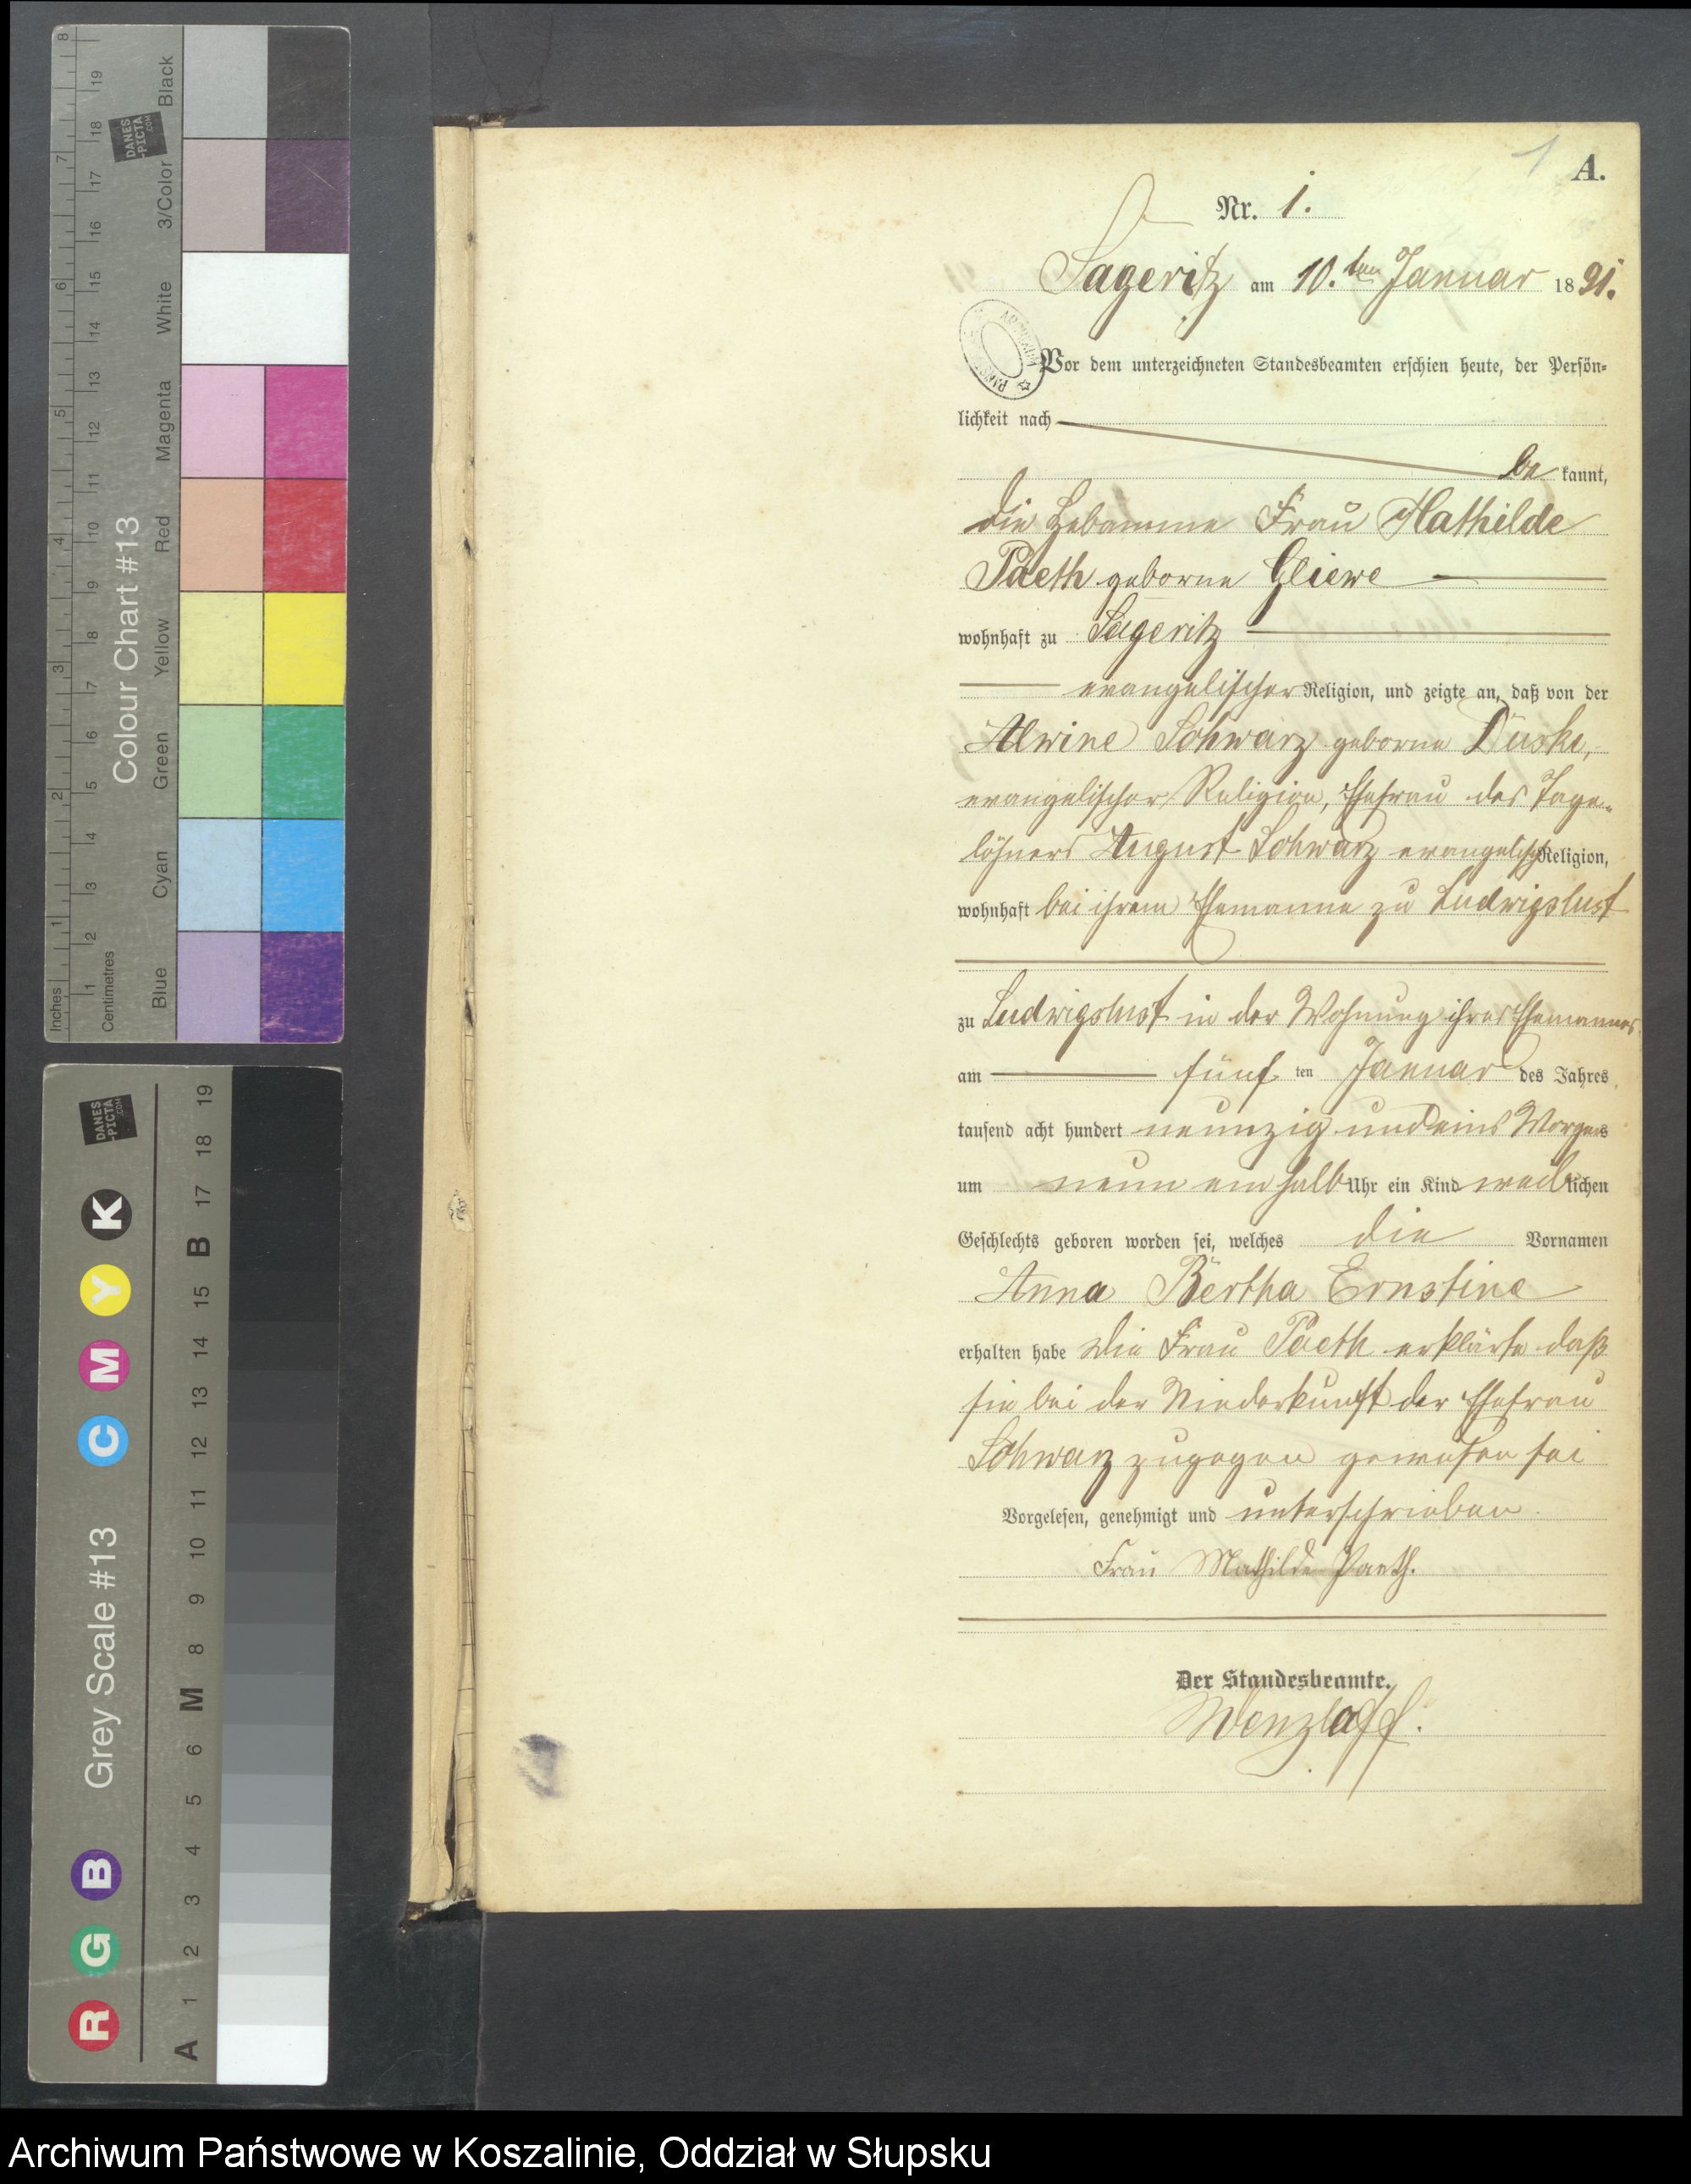 Inches 1 2 3 4 5 6 7 8
Centimetres 1 2 3 4 5 6 7 8 9 10 11 12 13 14 15 16 17 18 19
Colour Chart #13
Blue Cyan Green Yellow Red Magenta White 3/Color Black
DANES
-PICTA
.COM
Grey Scale #13
R G B C M Y K
A 1 2 3 4 5 6 M 8 9 10 11 12 13 14 15 B 17 18 19
DANES
-PICTA
.COM
1
A.
Nr. 1.
Sageritz am 10.ten Januar 1891.
Vor dem unterzeichneten Standesbeamten erschien heute, der Persön-
lichkeit nach
be kannt,
die Hebamme Frau Mathilde
Paeth geborne Gliewe
wohnhaft zu Sageritz
evangelischer Religion, und zeigte an, daß von der
Alwine Schwarz geborne Duske,
evangelischer Religion, Ehefrau des Tage-
löhners August Schwarz evangelisch Religion,
wohnhaft bei ihrem Ehemanne zu Ludwigslust
zu Ludwigslust in der Wohnung ihres Ehemannes
am fünf ten Januar des Jahres
tausend acht hundert neunzig und eins Morgens
um neun ein halb Uhr ein Kind weiblichen
Geschlechts geboren worden sei, welches die Vornamen
Anna Bertha Ernstine
erhalten habe Die Frau Paeth erklärte daß
sie bei der Niederkunft der Ehefrau
Schwarz zugegen gewesen sei
Vorgelesen, genehmigt und unterschrieben.
Frau Mathilde Paeth.
Der Standesbeamte.
Wenzlaff.
Archiwum Państwowe w Koszalinie, Oddział w Słupsku